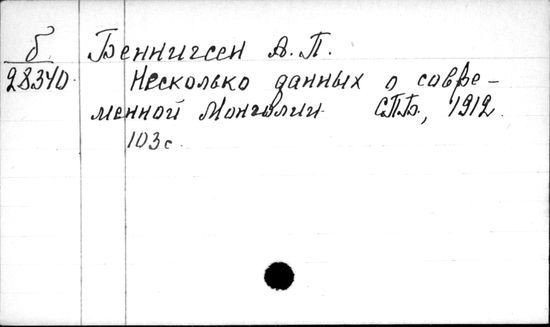 б
28340
Беннигсен А. П.
Несколько данных о совре-
менной Монголии СПБ, 1912
103 с